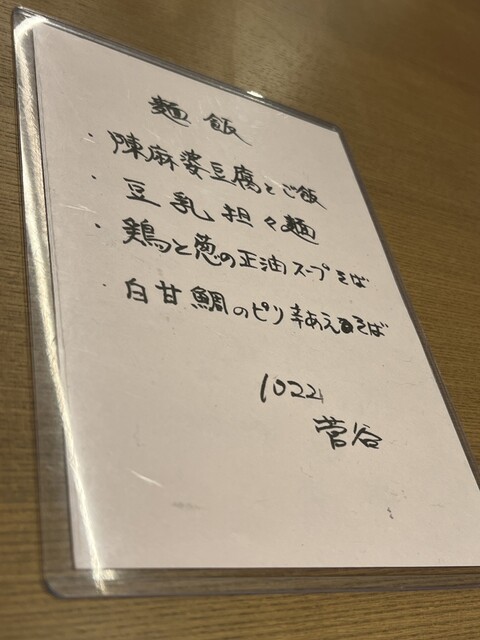 麺飯
・陳麻婆豆腐とご飯
・豆乳担々麺
・鶏と葱の正油スープそば
・白甘鯛のピリ辛あえそば
1022
菅谷